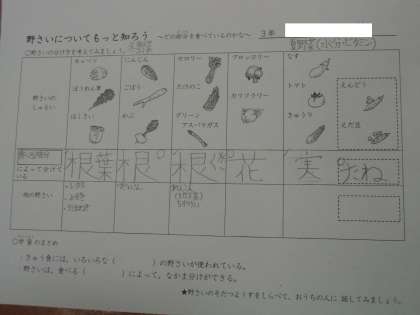 野さいについてもっと知ろう ～どの部分を食べているのかな～ 3年
夏野菜(水分・ビタミン)
◎野さいの分け方を考えてみましょう。
野さいの
しゅるい
キャベツ
ほうれん草
はくさい
にんじん
ごぼう
かぶ
セロリー
たけのこ
グリーン
アスパラガス
ブロッコリー
カリフラワー
なす
トマト
きゅうり
えんどう
えだ豆
食べる部分
によって分けて
いる
葉
根
花
実
たね
他の野さい
・レタス
れんこん
○学習のまとめ
・きゅう食には、いろいろな（ ）の野さいが使われている。
・野さいは、食べる（ ）によって、なかま分けができる。
★野さいのそだつようすをしらべて、おうちの人に 話してみましょう。